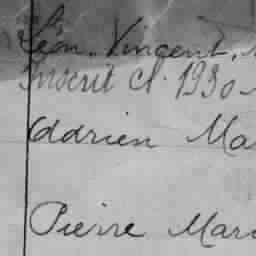 Léon. Vincent.
Inscrit cl. 1930
Adrien Ma
Pierre Mar